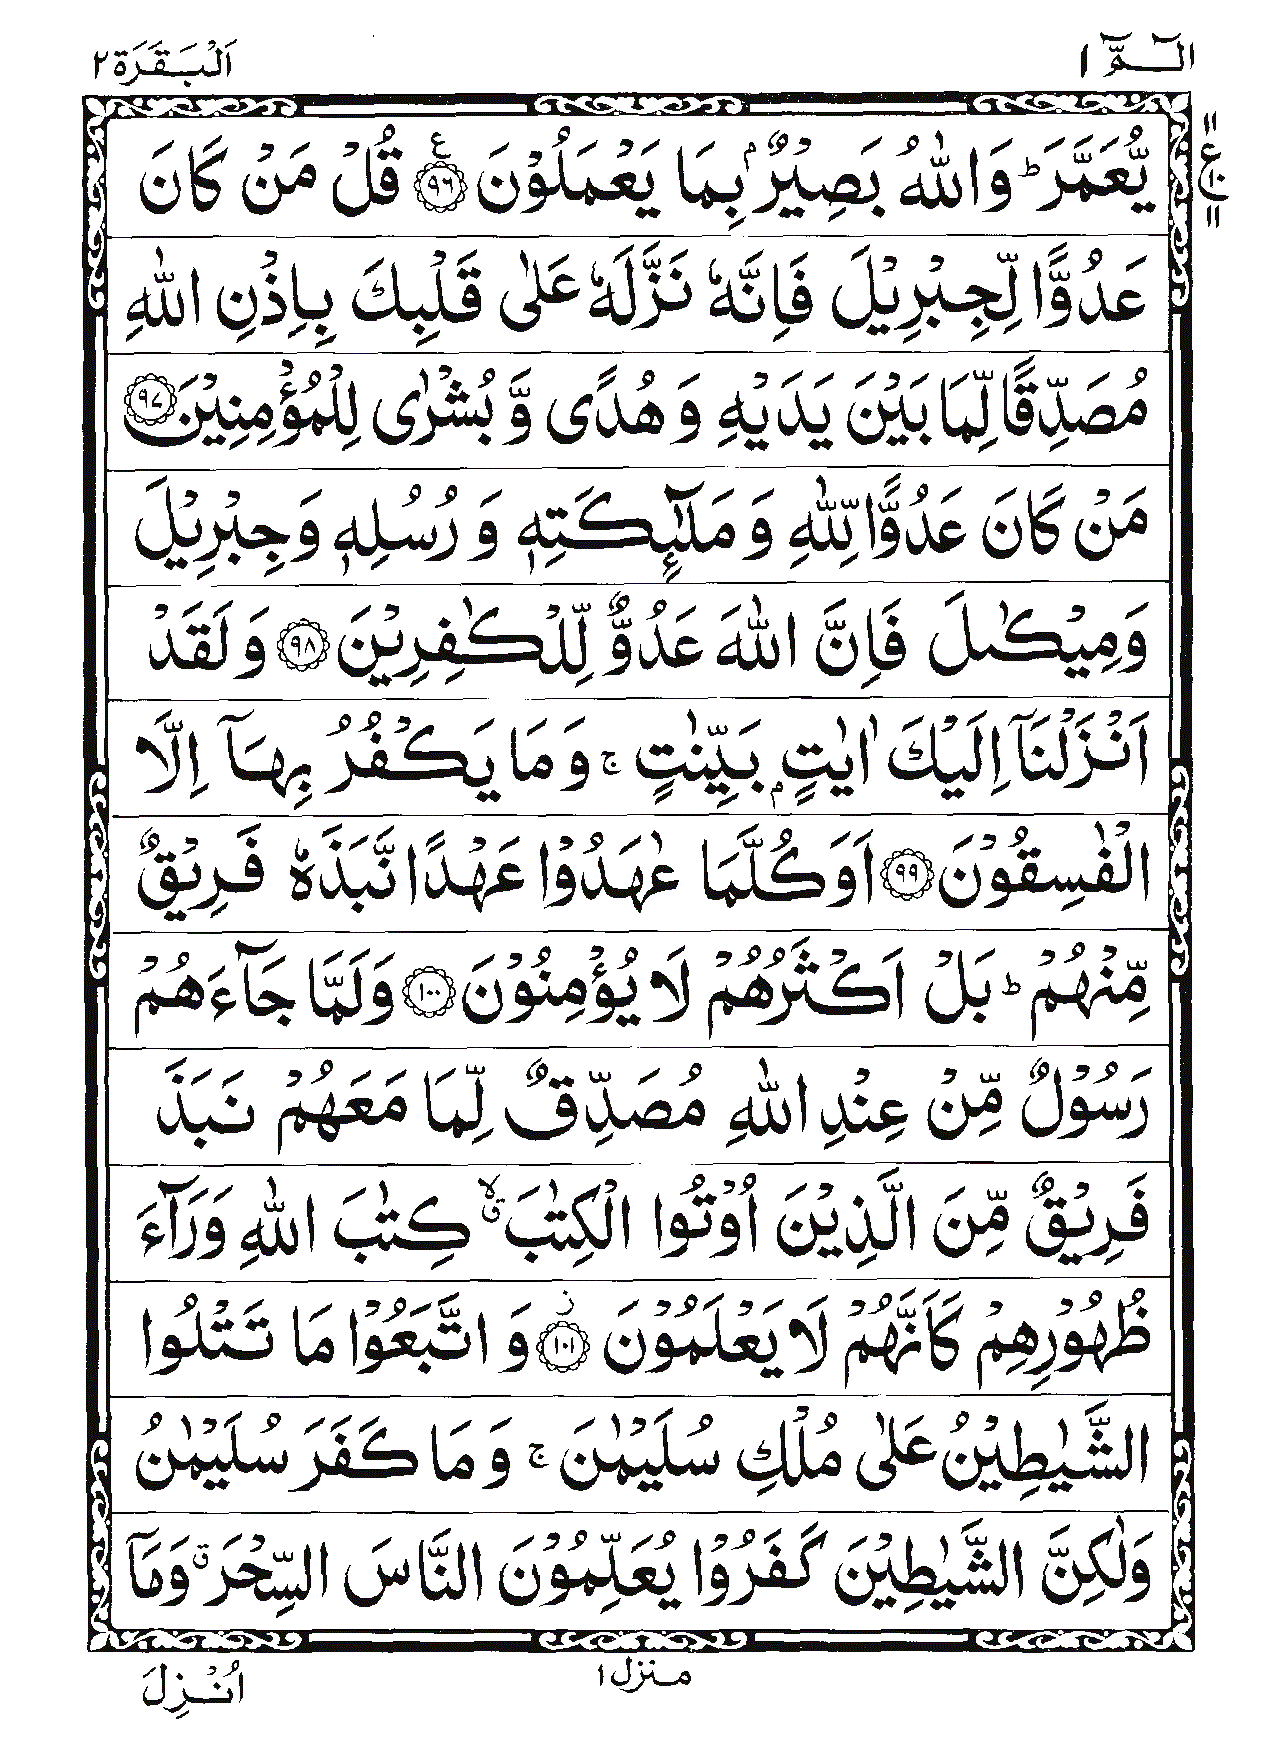 الٓـمّٓ ١
اَلْبَقَرَة ٢
يُّعَمَّرَ ؕ وَاللّٰهُ بَصِيْرٌۢ بِمَا يَعْمَلُوْنَ ﴿٩٦﴾ ع قُلْ مَنْ كَانَ
١١ ع ١٠ ١١
عَدُوًّا لِّجِبْرِيْلَ فَاِنَّهٗ نَزَّلَهٗ عَلٰى قَلْبِكَ بِاِذْنِ اللّٰهِ
مُصَدِّقًا لِّمَا بَيْنَ يَدَيْهِ وَ هُدًى وَّ بُشْرٰى لِلْمُؤْمِنِيْنَ ﴿٩٧﴾
مَنْ كَانَ عَدُوًّا لِّلّٰهِ وَ مَلٰٓئِكَتِهٖ وَ رُسُلِهٖ وَ جِبْرِيْلَ
وَمِيْكٰىلَ فَاِنَّ اللّٰهَ عَدُوٌّ لِّلْكٰفِرِيْنَ ﴿٩٨﴾ وَ لَقَدْ
اَنْزَلْنَاۤ اِلَيْكَ اٰيٰتٍۭ بَيِّنٰتٍ ۚ وَ مَا يَكْفُرُ بِهَاۤ اِلَّا
الْفٰسِقُوْنَ ﴿٩٩﴾ اَوَكُلَّمَا عٰهَدُوْا عَهْدًا نَّبَذَهٗ فَرِيْقٌ
مِّنْهُمْ ؕ بَلْ اَكْثَرُهُمْ لَا يُؤْمِنُوْنَ ﴿١٠٠﴾ وَلَمَّا جَآءَهُمْ
رَسُوْلٌ مِّنْ عِنْدِ اللّٰهِ مُصَدِّقٌ لِّمَا مَعَهُمْ نَبَذَ
فَرِيْقٌ مِّنَ الَّذِيْنَ اُوْتُوا الْكِتٰبَ ۙق كِتٰبَ اللّٰهِ وَرَآءَ
ظُهُوْرِهِمْ كَاَنَّهُمْ لَا يَعْلَمُوْنَ ﴿١٠١﴾ ز وَ اتَّبَعُوْا مَا تَتْلُوا
الشَّيٰطِيْنُ عَلٰى مُلْكِ سُلَيْمٰنَ ۚ وَ مَا كَفَرَ سُلَيْمٰنُ
وَلٰكِنَّ الشَّيٰطِيْنَ كَفَرُوْا يُعَلِّمُوْنَ النَّاسَ السِّحْرَ ق وَمَاۤ
منزل ١
اُنْزِلَ